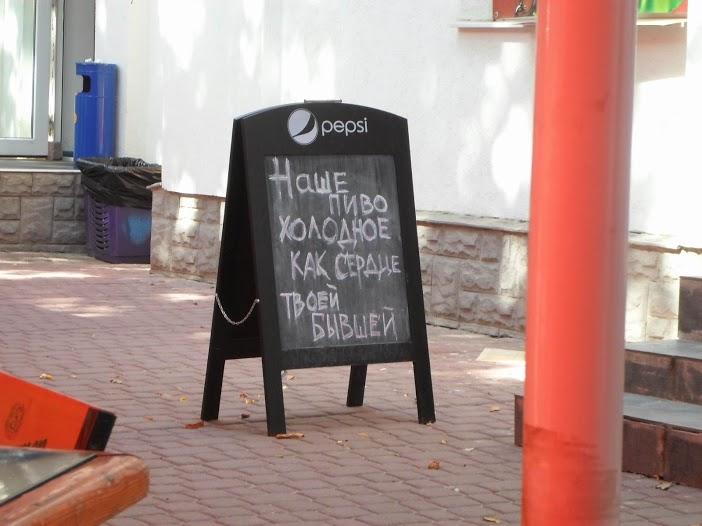 pepsi
Наше
пиво
холодное
как сердце
твоей
бывшей